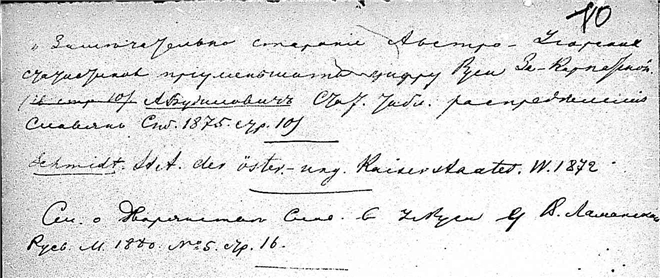 10
„Замѣчательно стараніе Австро-Угорскихъ
статистиковъ преуменьшать цифру Руси За-Карпатской.
(ib стр 10) А Будиловичъ Стат. табл. распредѣленія
Славянъ Спб. 1875. стр. 10)
Schmidt. St. d. der öster.-ung. Kaiserstaates. W. 1872
См. о Дворянствѣ в Руси у В. Ламанскаго
Русь. М. 1880. № 5. стр. 16.